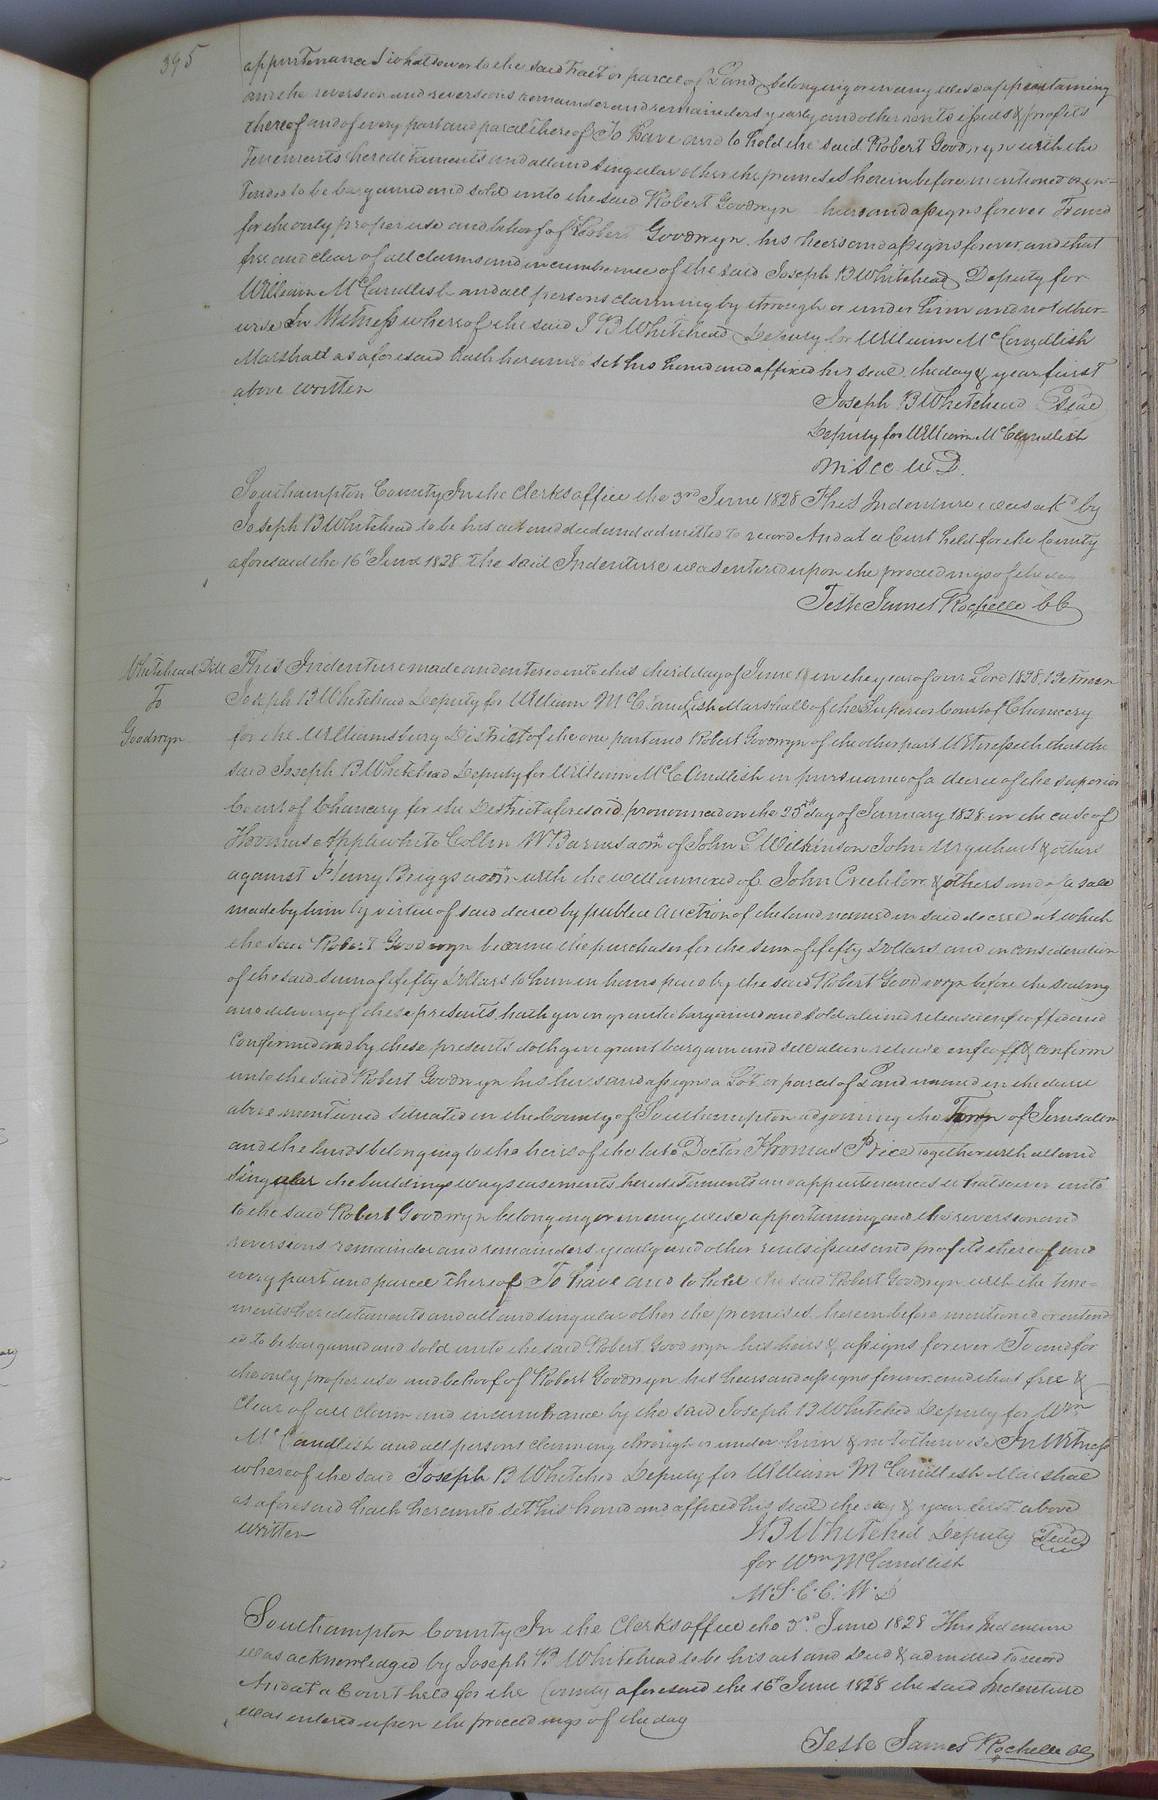 395
appurtenances whatsoever to the said Tract or parcel of Land belonging or in any wise appertaining
and the reversion and reversions remainder and remainders yearly and other rents issues & profits
thereof and of every part and parcel thereof To Have and to hold the said Robert Goodwyn with the
Tenements hereditaments and all and singular other the premises herein before mentioned or in-
tended to be bargained and sold unto the said Robert Goodwyn heirs and assigns forever To and
for the only proper use and behoof of Robert Goodwyn his heirs and assigns forever and that
free and clear of all claims and incumbrance of the said Joseph B Whitehead Deputy for
William McCandlish and all persons claiming by through or under him and not other-
wise In Witness whereof the said J B Whitehead Deputy for William McCandlish
Marshall as aforesaid hath hereunto set his hand and affixed his seal the day & year first
above written
Joseph B Whitehead Seal
Deputy for William McCandlish
M S C C W D
Southampton County In the Clerks office the 3rd June 1828 This Indenture was ackd by
Joseph B Whitehead to be his act and deed and admitted to record And at a Court held for the County
aforesaid the 16th June 1828 The said Indenture was entered upon the proceedings of the day
Teste James Rochelle CC
Whitehead
To
Goodwyn
This Indenture made and entered into this third day of June in the year of our Lord 1828 Between
Joseph B Whitehead Deputy for William McCandlish Marshall of the Superior Court of Chancery
for the Williamsburg District of the one part and Robert Goodwyn of the other part Witnesseth that the
said Joseph B Whitehead Deputy for William McCandlish in pursuance of a decree of the superior
Court of Chancery for the District aforesaid pronounced on the 25th day of January 1828 in the case of
Thomas Applewhite Collin W Barnes adm of John S Wilkinson John Urquhart & others
against Henry Briggs admr with the will annexed of John Crichlow & others and of a sale
made by him by virtue of said decree by publick auction of the land named in said decree at which
the said Robert Goodwyn became the purchaser for the sum of fifty Dollars and in consideration
of the said sum of fifty Dollars to him in hand paid by the said Robert Goodwyn before the sealing
and delivery of these presents hath given granted bargained and sold aliened released enfeoffed and
Confirmed and by these presents doth give grant bargain and sell alien release enfeoff & confirm
unto the said Robert Goodwyn his heirs and assigns a Lot or parcel of Land named in the decree
above mentioned situated in the County of Southampton adjoining the Town of Jerusalem
and the lands belonging to the heirs of the late Doctor Thomas Price Together with all and
singular the buildings ways easements hereditaments and appurtenances whatsoever unto
to the said Robert Goodwyn belonging or in any wise appertaining and the reversion and
reversions remainder and remainders yearly and other rents issues and profits thereof and
every part and parcel thereof To have and to hold the said Robert Goodwyn with the tene=
ments hereditaments and all and singular other the premises herein before mentioned or intend
ed to be bargained and sold unto the said Robert Goodwyn his heirs & assigns forever To and for
the only proper use and behoof of Robert Goodwyn his heirs and assigns forever and that free &
Clear of all claim and incumbrance by the said Joseph B Whitehed Deputy for Wm
McCandlish and all persons claiming through or under him & not otherwise In Witness
whereof the said Joseph B Whitehed Deputy for William McCandlish Marshal
as aforesaid hath hereunto set his hand and affixed his seal the day & year first above
written
J B Whitehed Deputy Seal
for Wm McCandlish
M. S. C. C. W. D
Southampton County In the Clerks office the 3rd June 1828 This Indenture
was acknowledged by Joseph B Whitehead to be his act and Deed & admitted to record
And at a Court held for the County aforesaid the 16th June 1828 the said Indenture
was entered upon the proceedings of the day
Teste James Rochelle CC